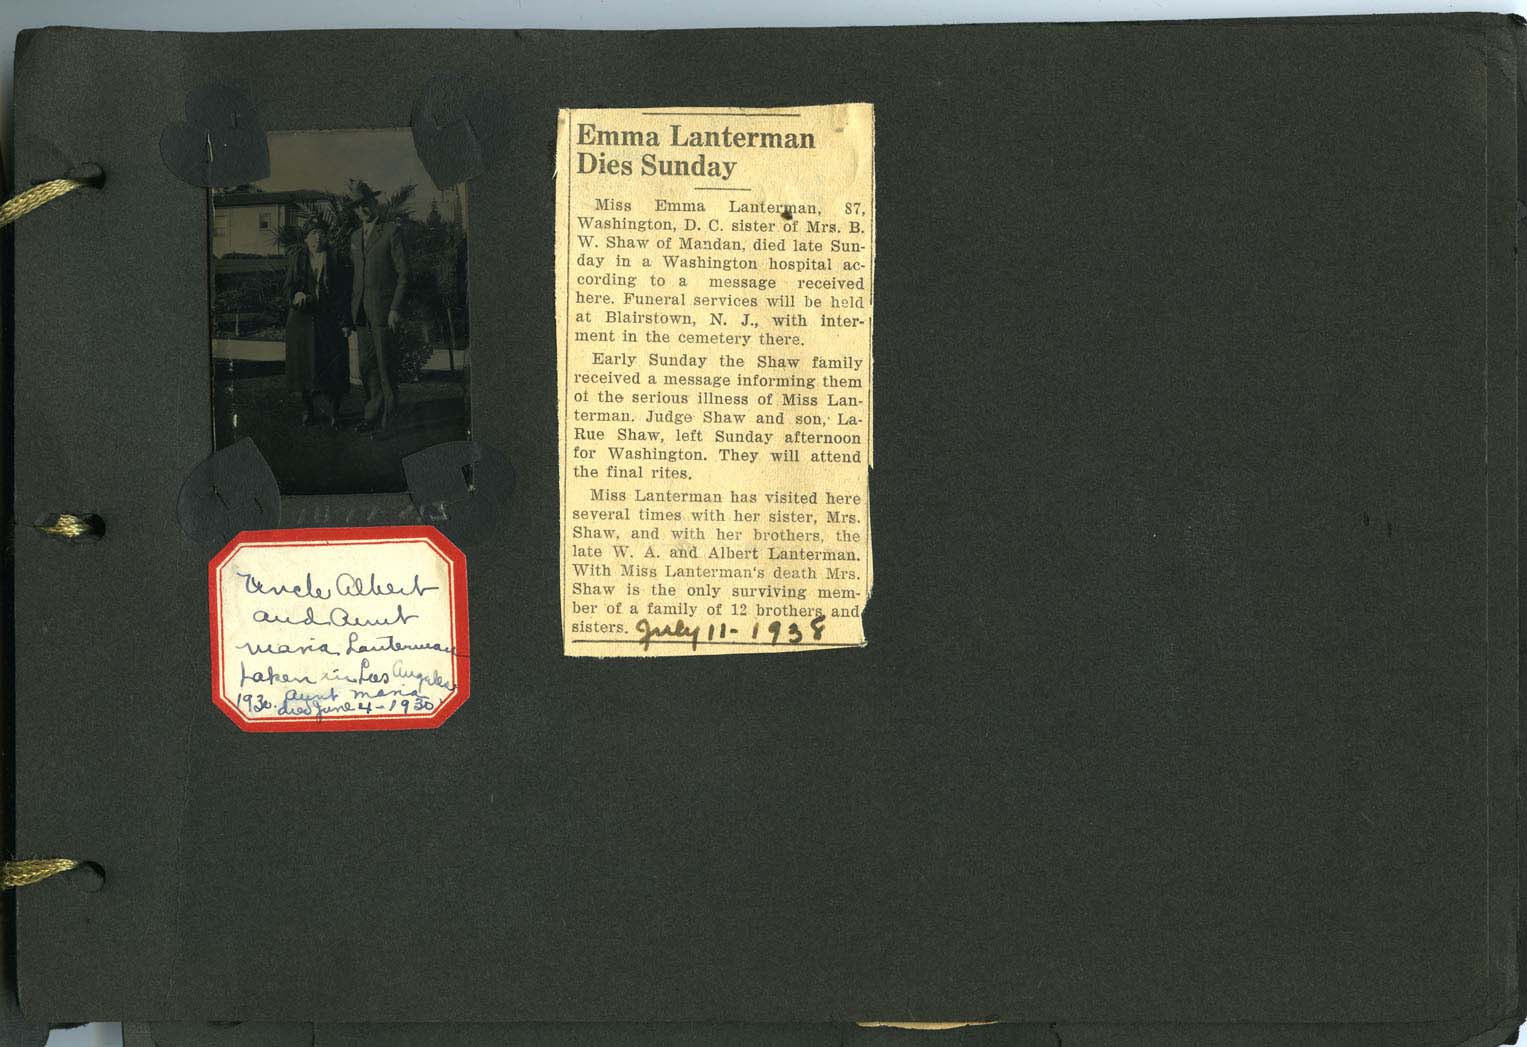 Emma Lanterman
Dies Sunday
Miss Emma Lanterman, 87,
Washington, D. C. sister of Mrs. B.
W. Shaw of Mandan, died late Sun-
day in a Washington hospital ac-
cording to a message received
here. Funeral services will be held
at Blairstown, N. J., with inter-
ment in the cemetery there.
Early Sunday the Shaw family
received a message informing them
of the serious illness of Miss Lan-
terman. Judge Shaw and son, La-
Rue Shaw, left Sunday afternoon
for Washington. They will attend
the final rites.
Miss Lanterman has visited here
several times with her sister, Mrs.
Shaw, and with her brothers, the
late W. A. and Albert Lanterman.
With Miss Lanterman's death Mrs.
Shaw is the only surviving mem-
ber of a family of 12 brothers and
sisters. July 11-1938
Uncle Albert
and Aunt
Maria Lanterman
taken in Los Angeles
1930. Aunt Maria
died June 4-1930